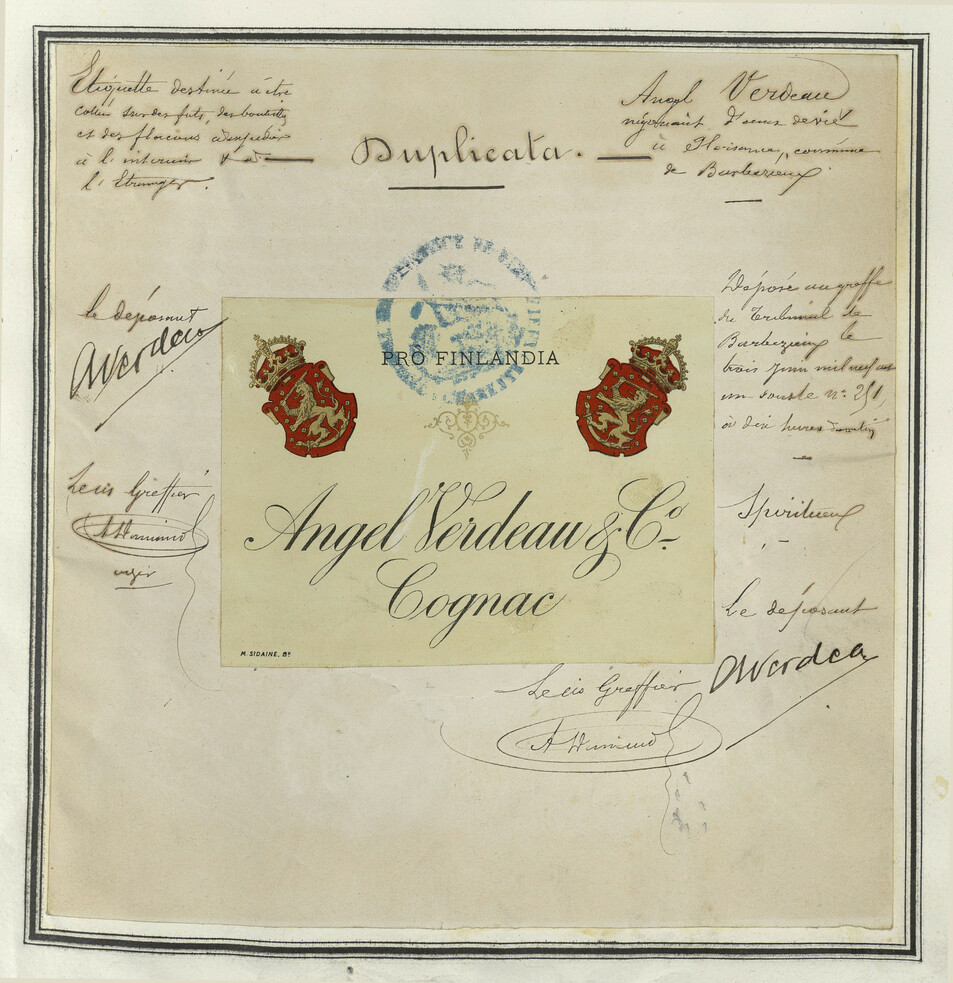 Etiquette destinée à être
collée sur des fûts, des bouteilles
et des flacons à expédier
à l'intérieur &
l'Etranger.
Duplicata.
Angel Verdeau
négociant d'eaux de vie
à Plaisance, commune
de Barbezieux
le déposant
AVerdeau
Déposé au greffe
du Tribunal de
Barbezieux le
trois juin mil neuf cent
un sous le n° 251,
à dix heures
PRO FINLANDIA
Angel Verdeau & Co
Cognac
M. SIDAINE, Bx
Greffier
Spiritueux
Le déposant
AVerdeau
Greffier